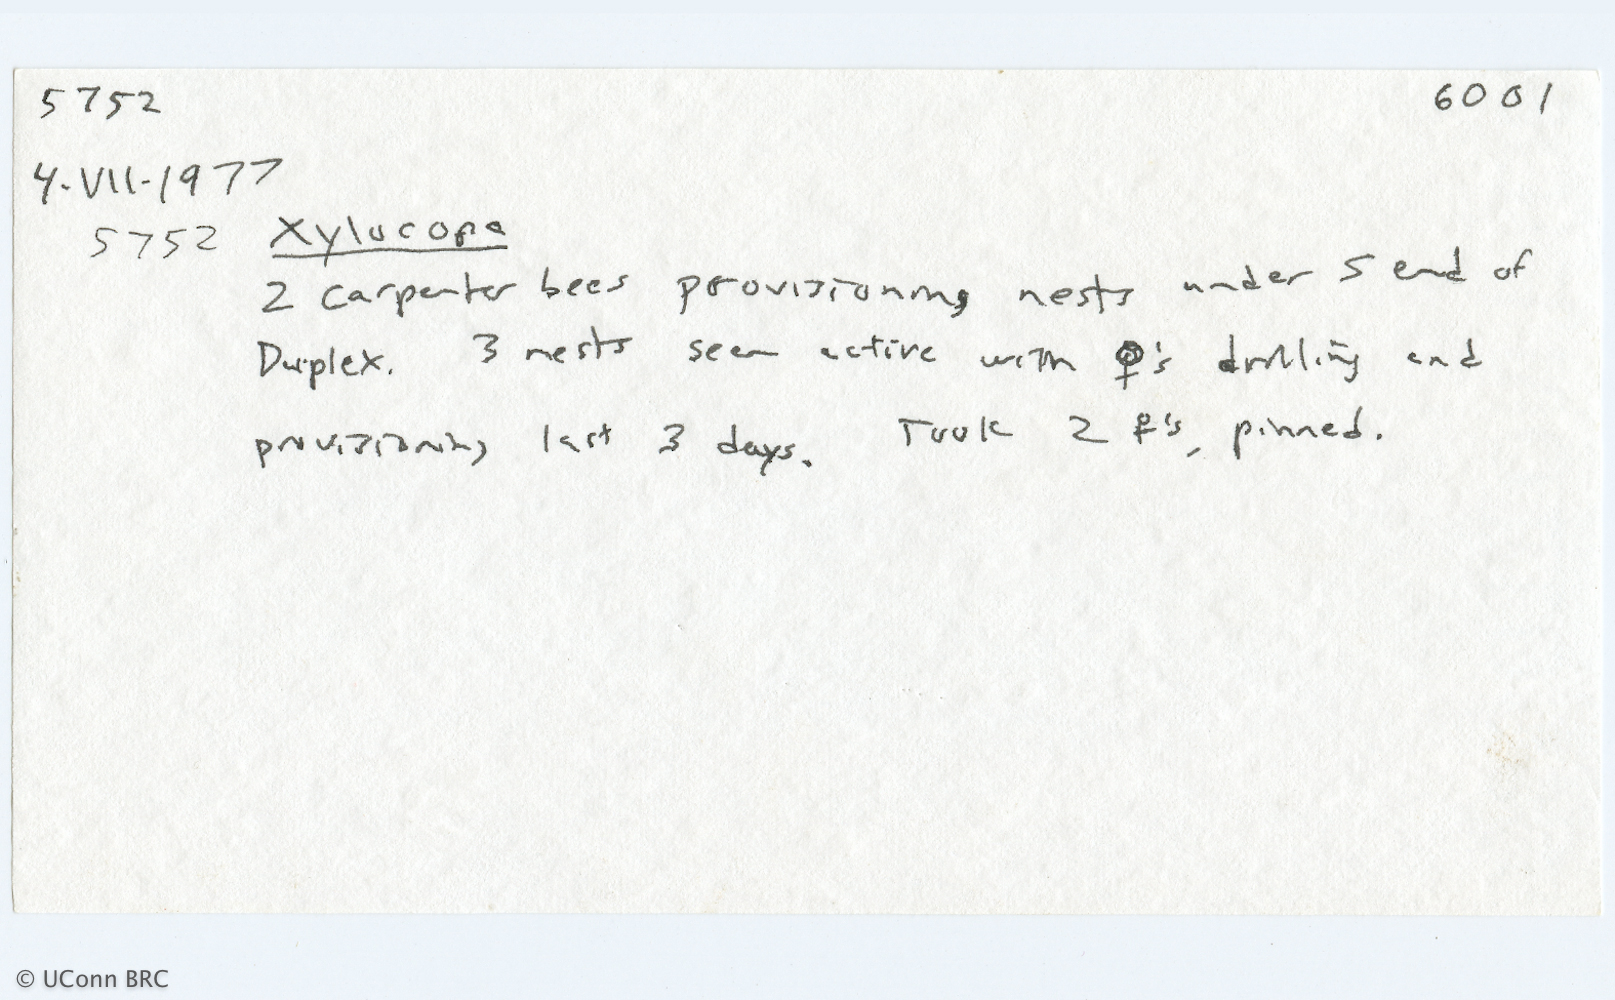 5752 6001
4.VII.1977
5752 Xylocopa
2 carpenter bees provisioning nests under S end of
Duplex. 3 nests seen active with ♀'s drilling and
provisioning last 3 days. Took 2 ♀'s, pinned.
© UConn BRC